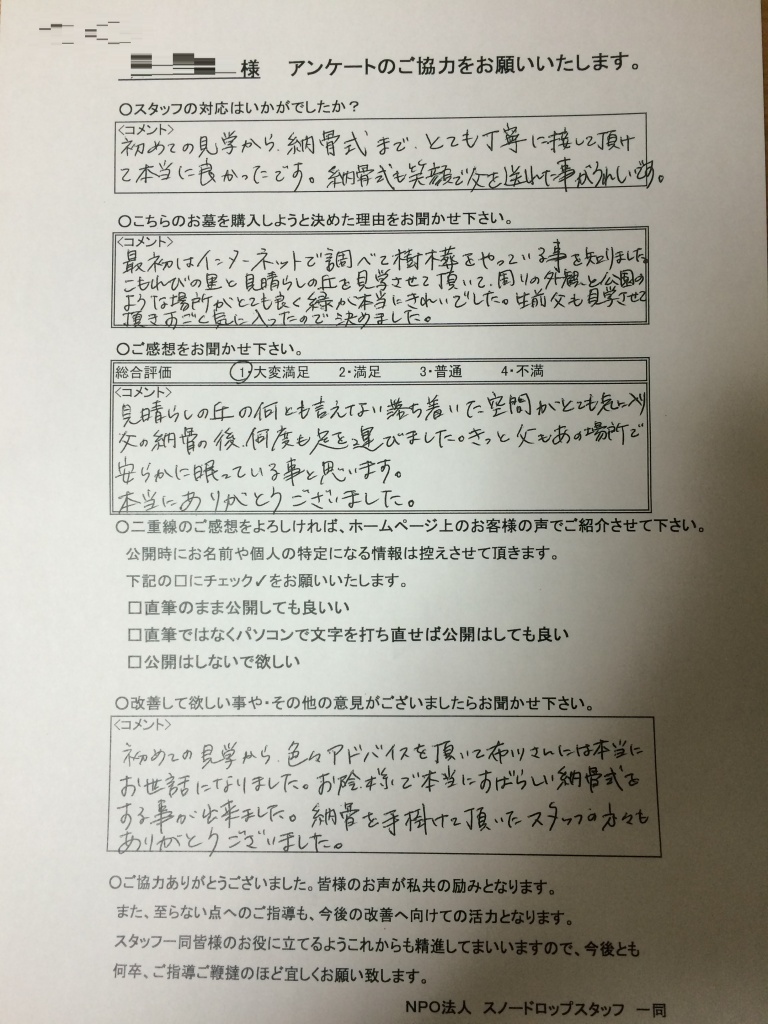 様　アンケートのご協力をお願いいたします。
〇スタッフの対応はいかがでしたか？
<コメント>
初めての見学から、納骨式まで、とても丁寧に接して頂け
て本当に良かったです。納骨式も笑顔で父を送れた事がうれしいです。
〇こちらのお墓を購入しようと決めた理由をお聞かせ下さい。
<コメント>
最初はインターネットで調べて樹木葬をやっている事を知りました。
こもれびの里と見晴らしの丘を見学させて頂いて、周りの外観と公園の
ような場所がとても良く緑が本当にきれいでした。生前父も見学させて
頂きすごく気に入ったので決めました。
〇ご感想をお聞かせ下さい。
総合評価　1・大変満足　2・満足　3・普通　4・不満
<コメント>
見晴らしの丘の何とも言えない落ち着いた空間がとても気に入り
父の納骨の後、何度も足を運びました。きっと父もあの場所で
安らかに眠っている事と思います。
本当にありがとうございました。
〇二重線のご感想をよろしければ、ホームページ上のお客様の声でご紹介させて下さい。
公開時にお名前や個人の特定になる情報は控えさせて頂きます。
下記の□にチェック✓をお願いいたします。
□直筆のまま公開しても良いい
□直筆ではなくパソコンで文字を打ち直せば公開はしても良い
□公開はしないで欲しい
〇改善して欲しい事や・その他の意見がございましたらお聞かせ下さい。
<コメント>
初めての見学から、色々アドバイスを頂いて布川さんには本当に
お世話になりました。お陰様で本当にすばらしい納骨式を
する事が出来ました。納骨を手掛けて頂いたスタッフの方々も
ありがとうございました。
〇ご協力ありがとうございました。皆様のお声が私共の励みとなります。
また、至らない点へのご指導も、今後の改善へ向けての活力となります。
スタッフ一同皆様のお役に立てるようこれからも精進してまいいますので、今後とも
何卒、ご指導ご鞭撻のほど宜しくお願い致します。
NPO法人　スノードロップスタッフ　一同